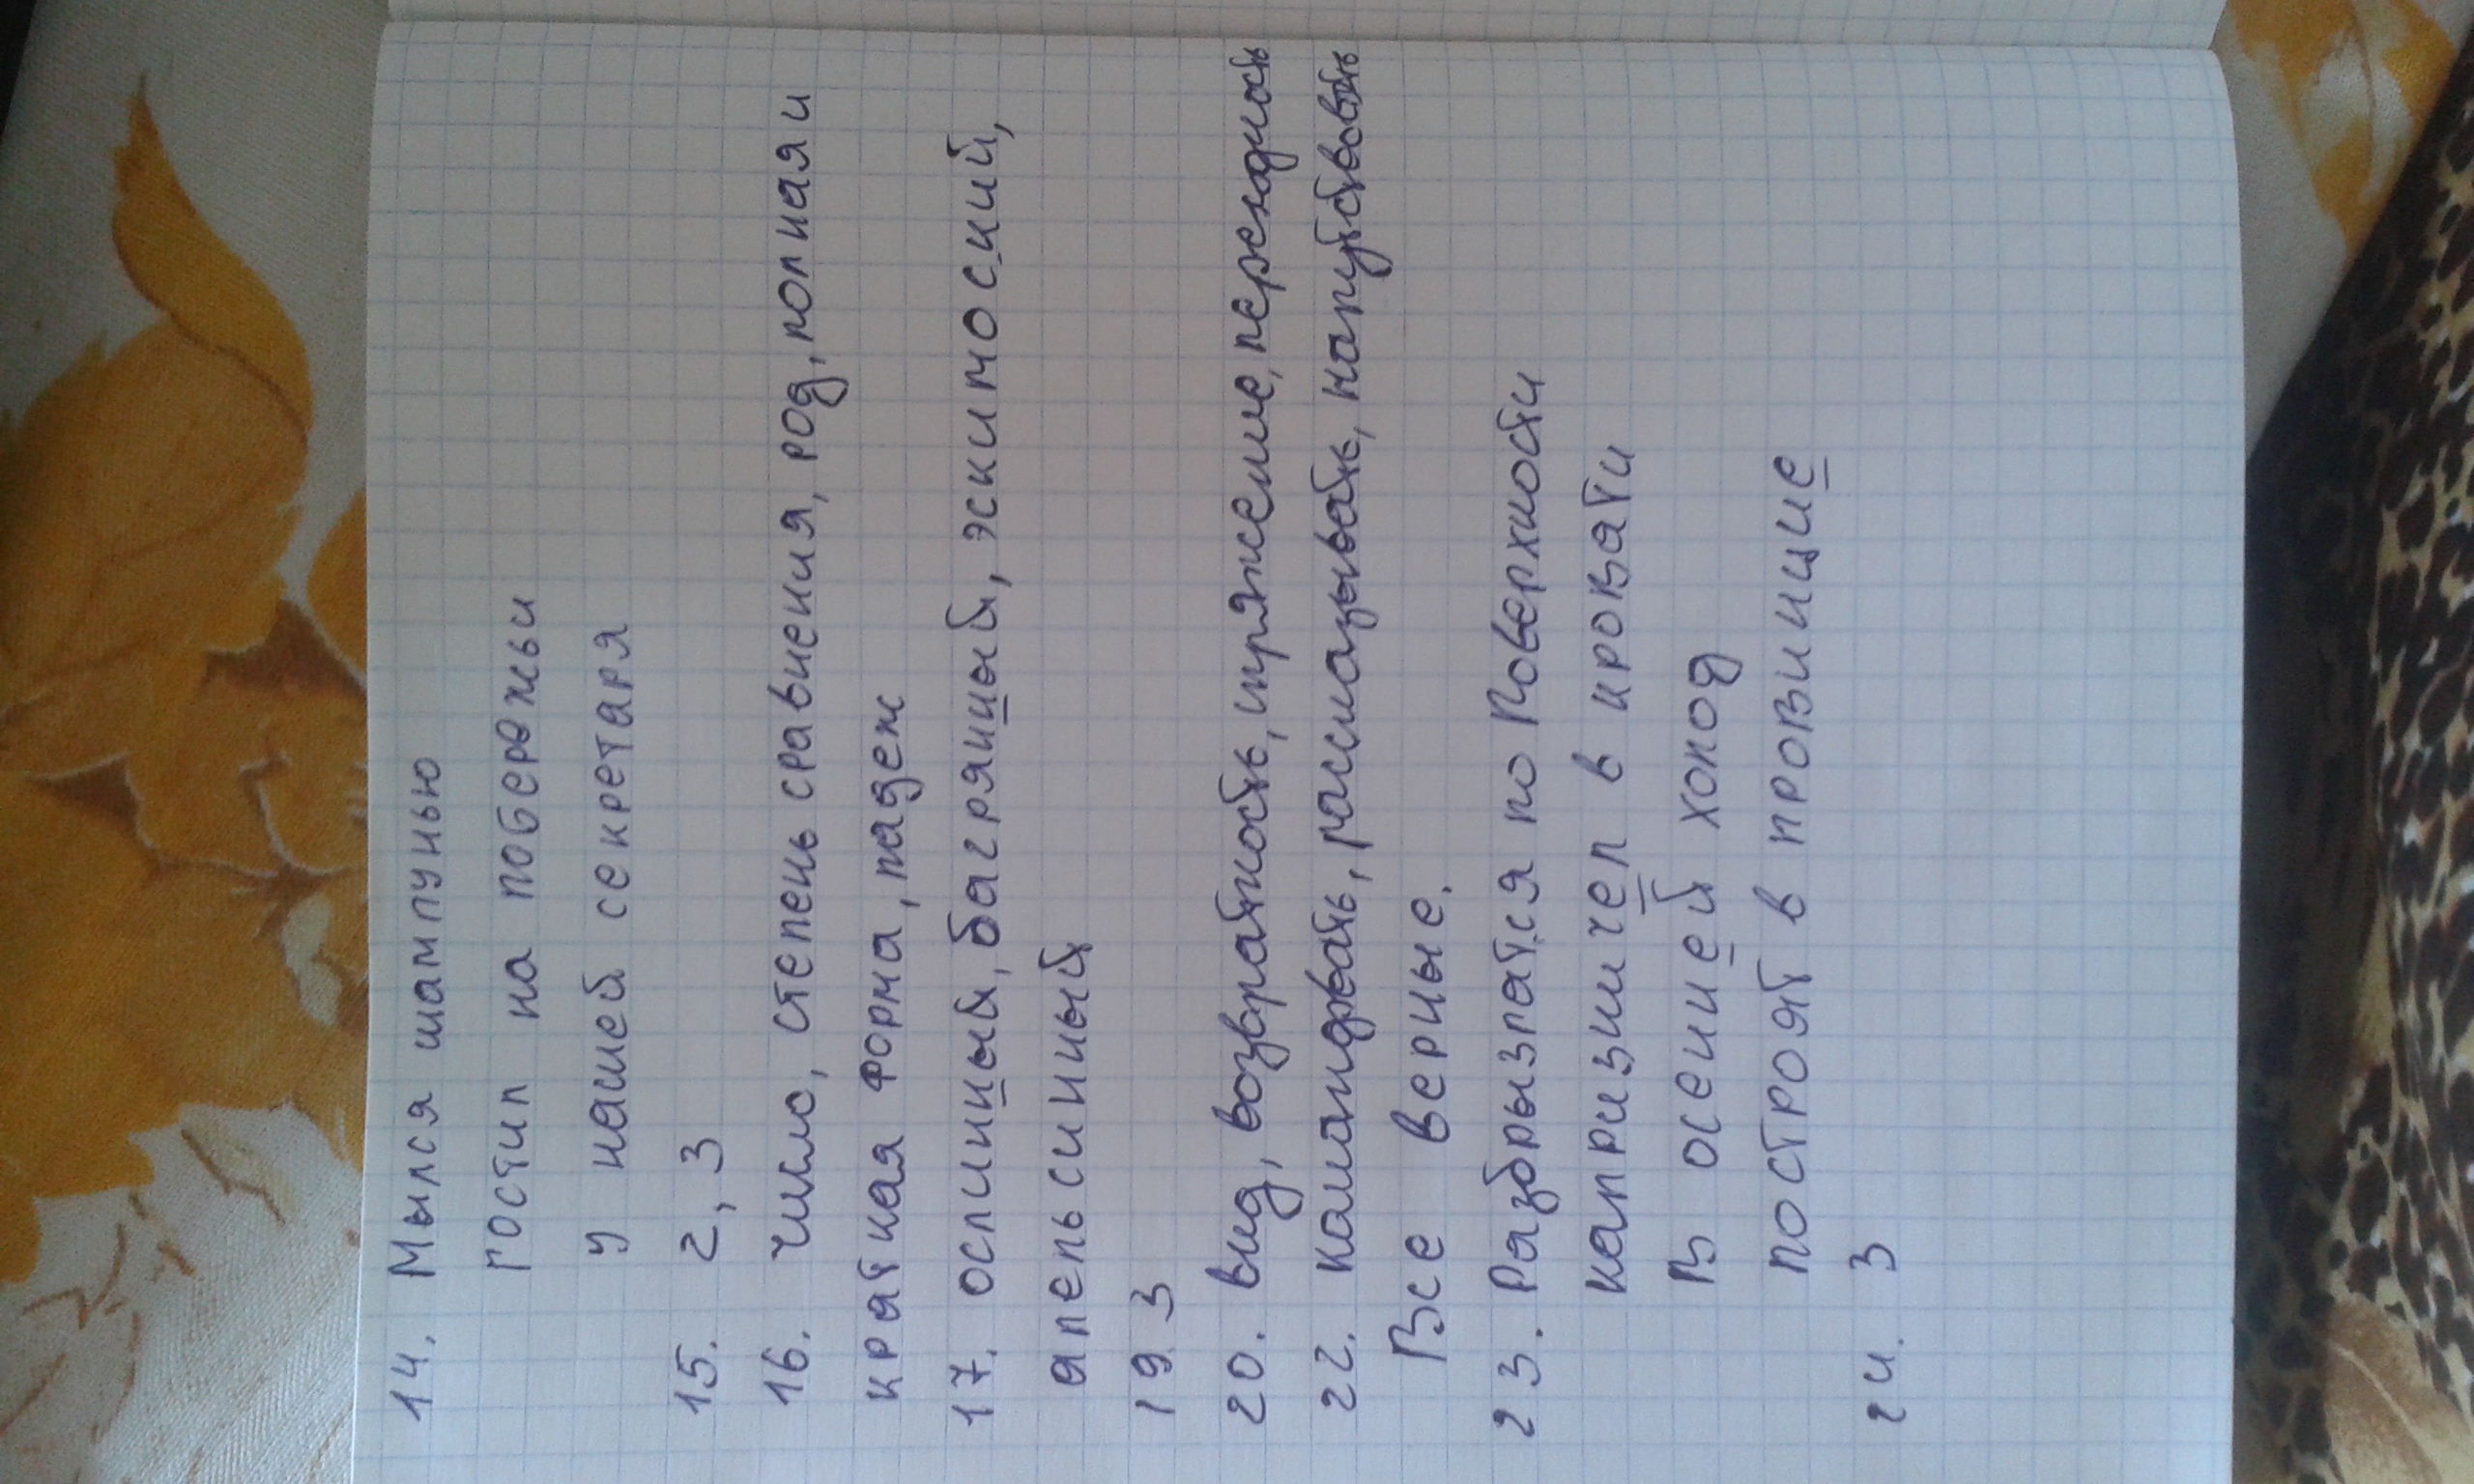 14. Мылся шампунью
гостил на побережьи
у нашей секретаря
15. 2, 3
16. число, степень сравнения, род, полная и
краткая форма, падеж
17. ослиный, багряный, эскимоский,
апельсиный
19 3
20. вид, возвратность, спряжение, переходность
22. командовать, рассказывать, напутствовать
Все верные.
23. Разбрызгатся по поверхности
капризничел в кровати
В осенней холод
построят в провинцие
24. 3